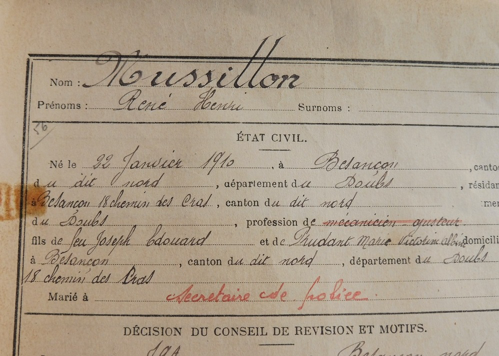 Nom : Mussillon
Prénoms : René Henri Surnoms :
56
ÉTAT CIVIL.
Né le 22 Janvier 1910, à Besançon, canton
du dit nord, département du Doubs, résidan
à Besançon 18 chemin des Cras, canton du dit nord
du Doubs, profession de mécanicien ajusteur
fils de feu Joseph Edouard et de Prudant Marie domicili
à Besançon, canton du dit nord, département du Doubs
18 chemin des Cras
Marié à secrétaire de police.
DÉCISION DU CONSEIL DE REVISION ET MOTIFS.
Besançon nord